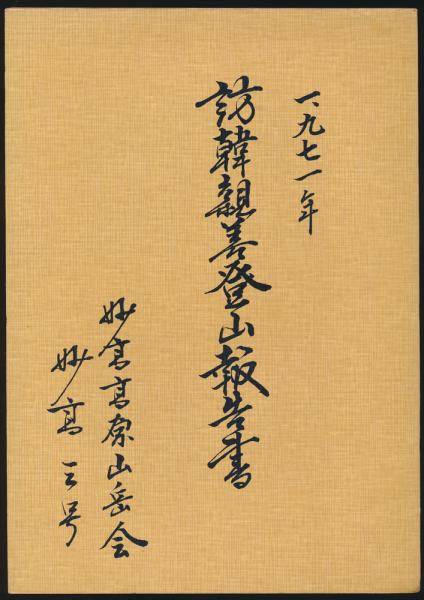 一、九七一年
訪韓親善登山報告書
妙高高原山岳会
妙高三号